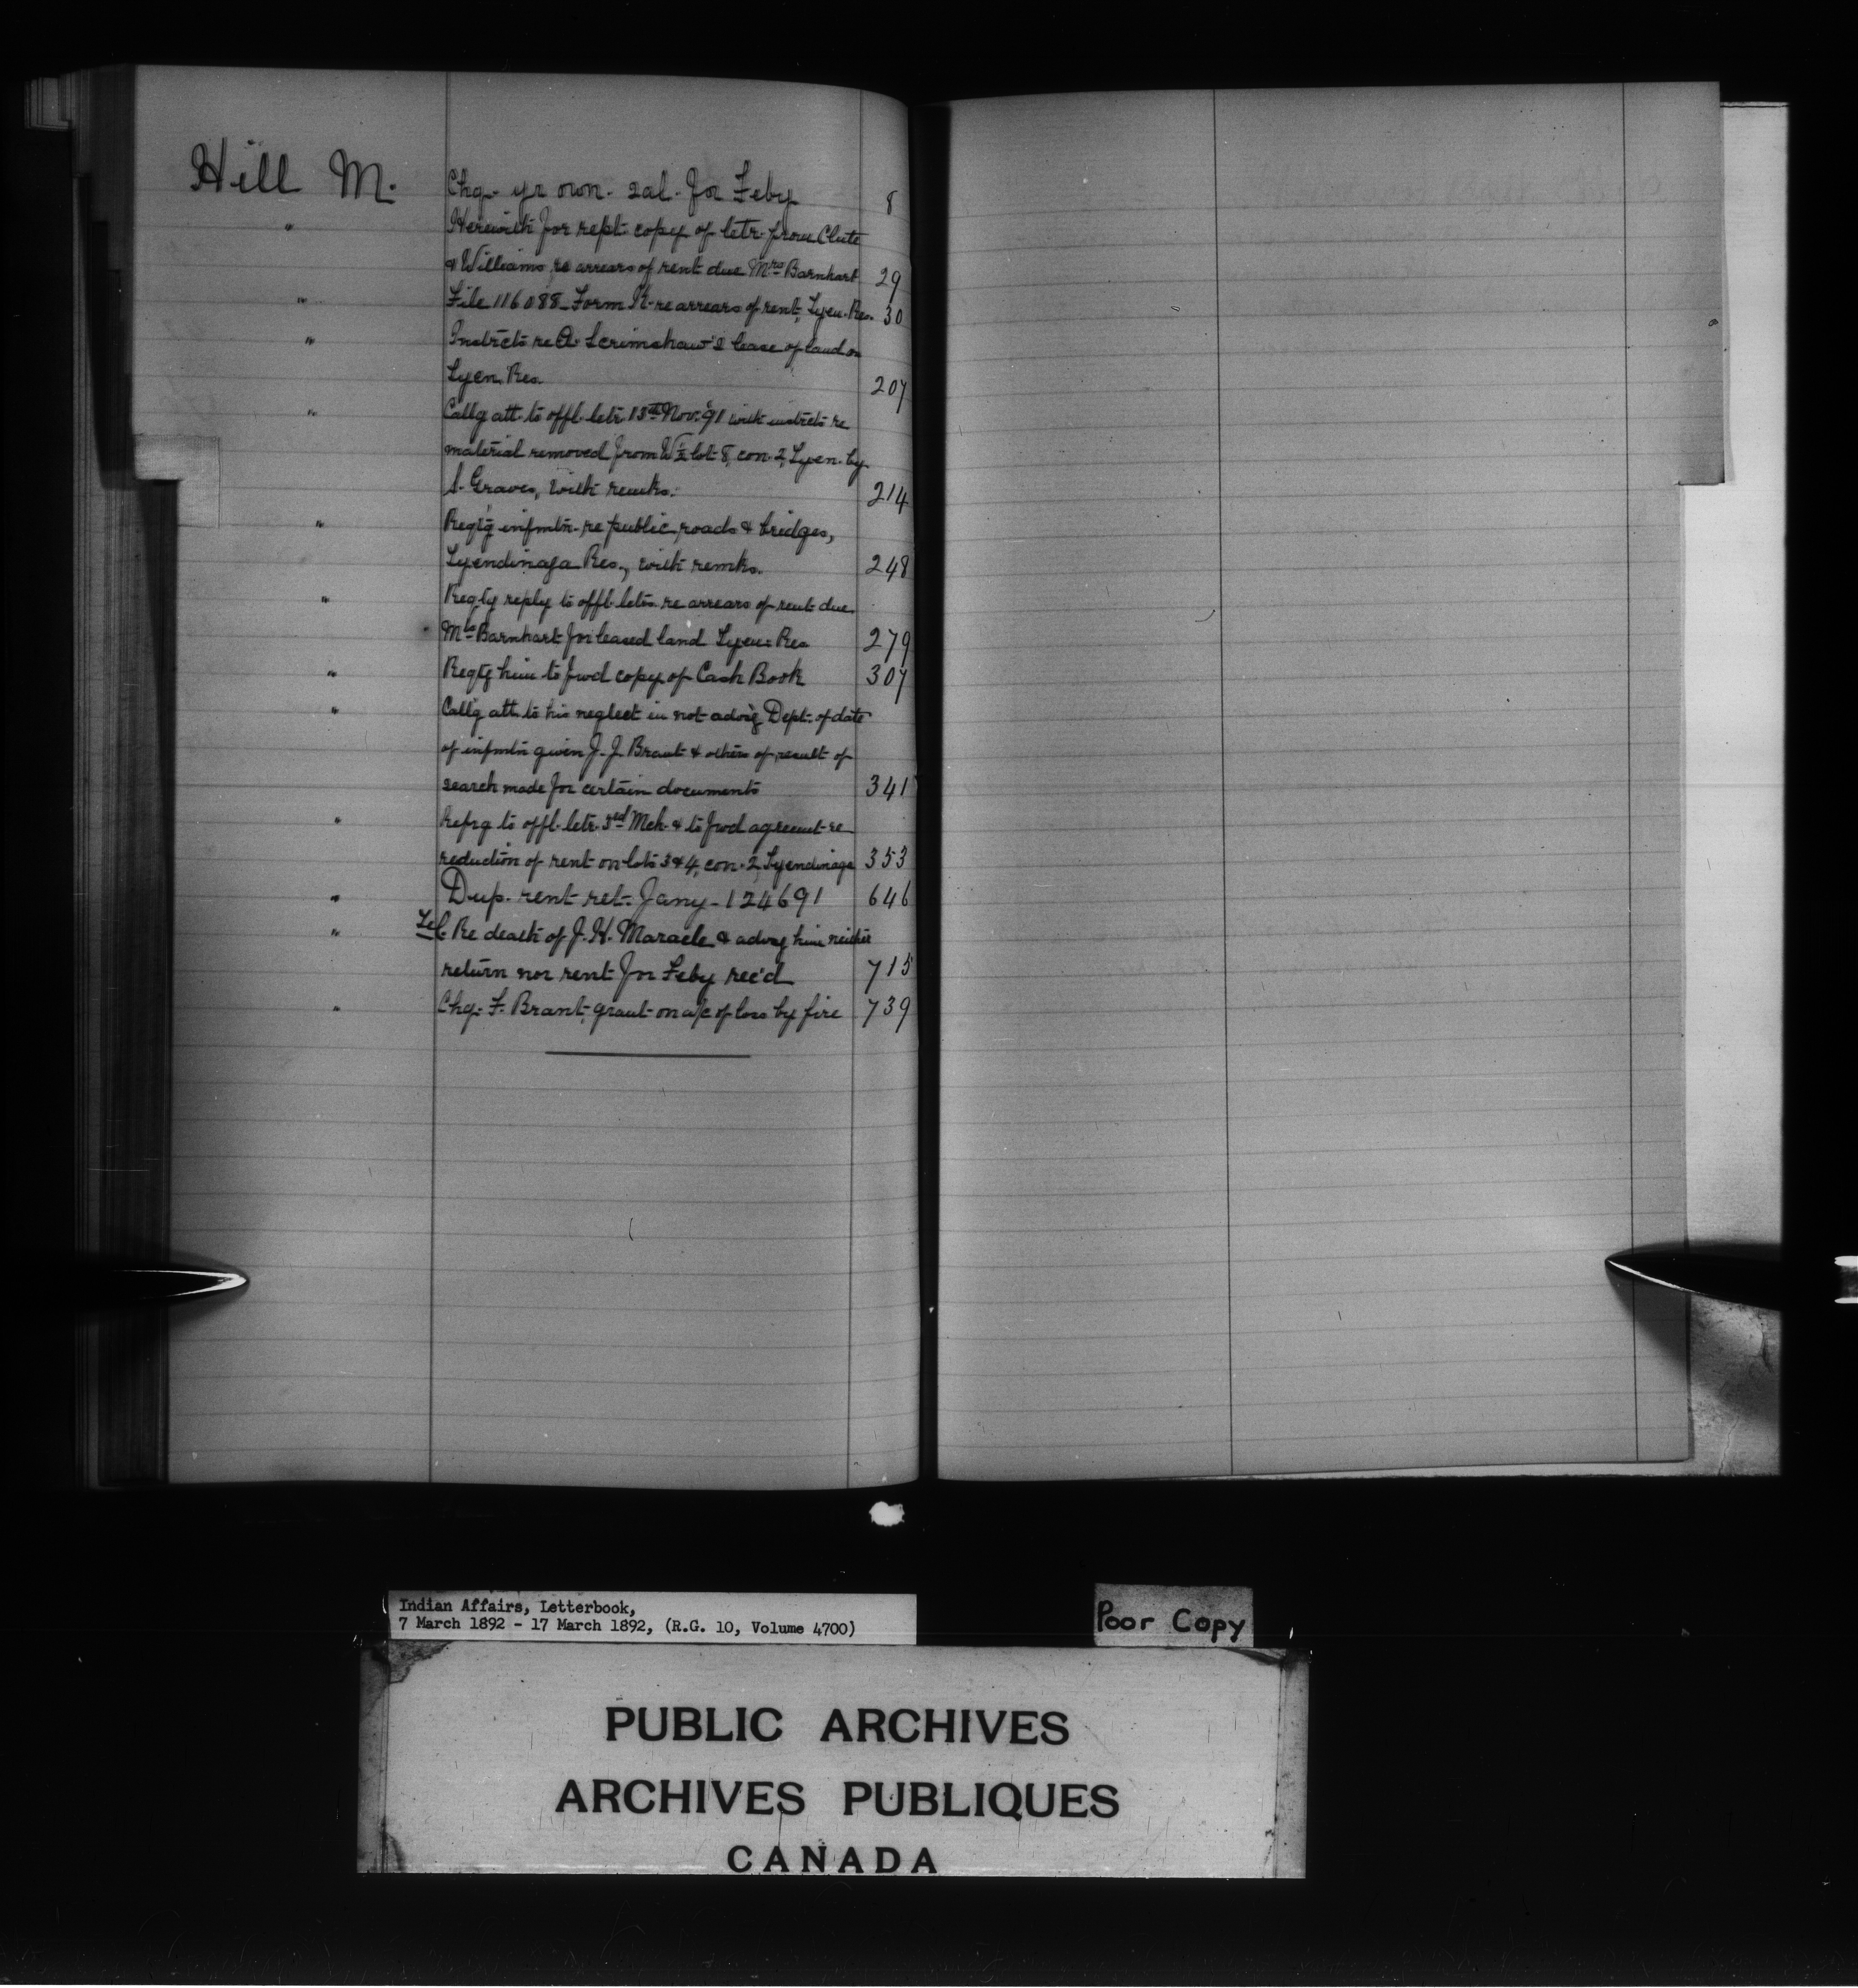 Hill M. Chq. yr own. sal. for Feby 8
" Herewith for rept. copy of letr. from Clute
& Williams re arrears of rent due Mrs Barnhart 29
" File 116088 – Form K. re arrears of rent, Tyen. Res. 30
" Instrcts re A. Scrimshaw's lease of land on
Tyen. Res. 207
" Callg att. to offl. letr. 13th Nov. '91 with instrcts re
material removed from W½ lot 8, con. 2, Tyen. by
S. Graves, with remks. 214
" Reqt'g infmtn. re public roads & bridges,
Tyendinaga Res., with remks. 248
" Reqtg reply to offl. letrs. re arrears of rent due
Mrs Barnhart for leased land Tyen. Res 279
" Reqtg him to fwd copy of Cash Book 307
" Call'g att. to his neglect in not advis'g Dept. of date
of infmtn given J. J. Brant & others of result of
search made for certain documents 341
" Refrg to offl. letr. 3rd Mch. & to fwd agreemt. re
reduction of rent on lots 3 & 4, con. 2, Tyendinaga 353
" Dup. rent ret. Jany – 124691 646
" Tel. Re death of J. H. Maracle & advsg him neither
return nor rent for Feby rec'd 715
" Chq. F. Brant, grant on a/c of loss by fire 739
Indian Affairs, Letterbook,
7 March 1892 - 17 March 1892, (R.G. 10, Volume 4700)
Poor Copy
PUBLIC ARCHIVES
ARCHIVES PUBLIQUES
CANADA